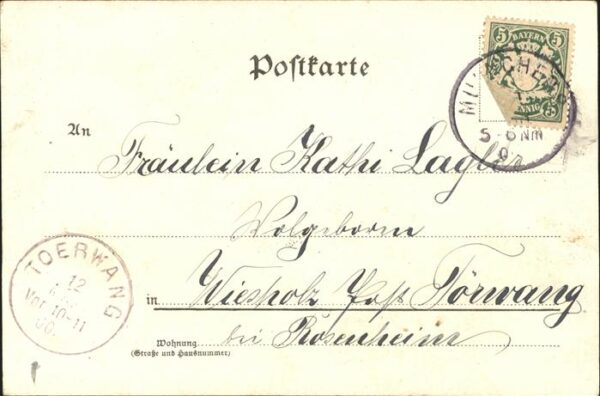 Postkarte
5 BAYERN 5
PFENNIG 5
MÜNCHEN
5-6 Nm
An
Fräulein Kathi Lagler
Wolgeborn
in Wiesholz Post Törwang
Wohnung bei Rosenheim
(Straße und Hausnummer)
TOERWANG
12
Vor. 10-11
00.